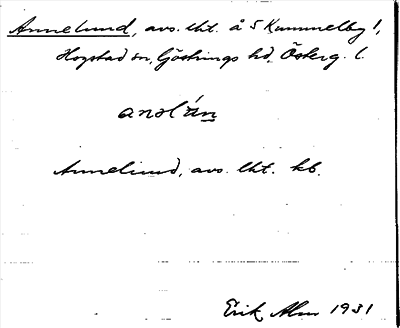 Annelund, avs. lht. å S Kummelby 1,
Hogstad sn, Göstrings hd, Österg. l.
anəlún
Annelund, avs. lht. kb.
Erik Alm 1931